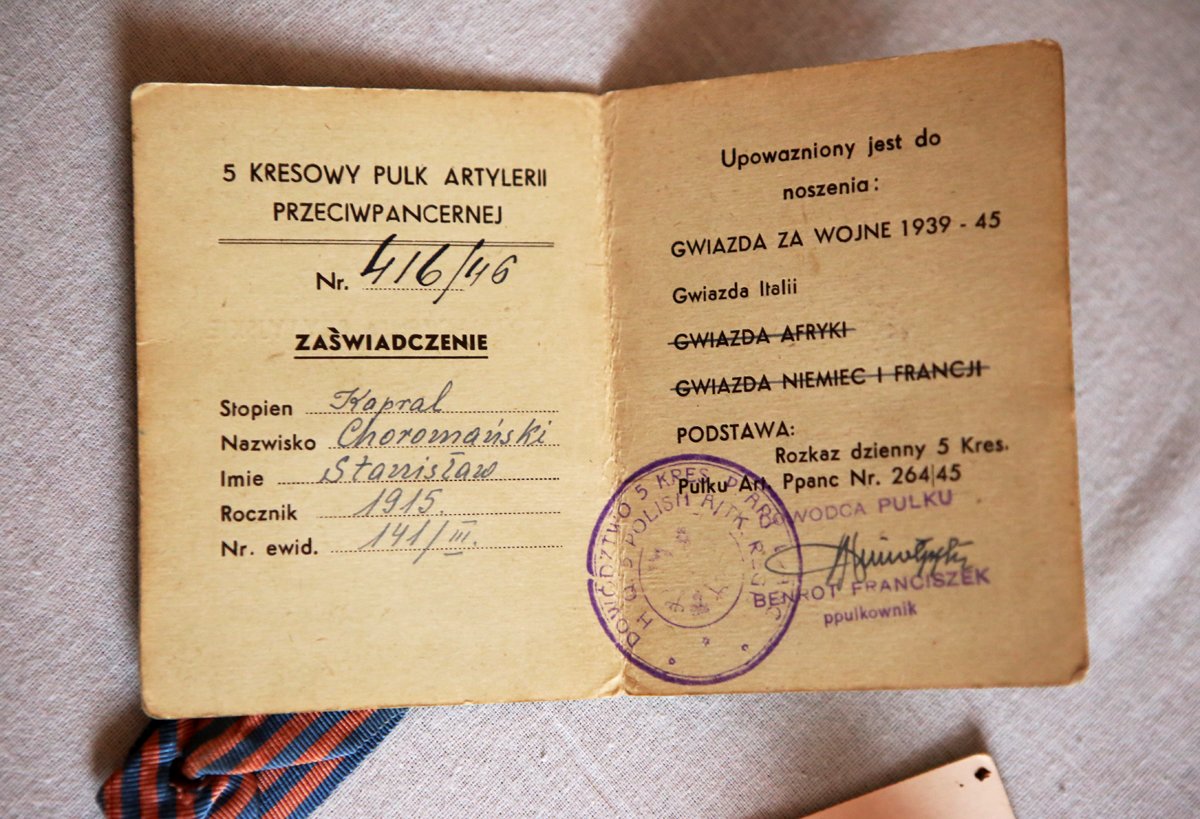 5 KRESOWY PULK ARTYLERII
PRZECIWPANCERNEJ
Nr. 416/46
ZAŚWIADCZENIE
Stopien Kapral
Nazwisko Choromański
Imie Stanisław
Rocznik 1915.
Nr. ewid. 141/III.
Upowazniony jest do
noszenia:
GWIAZDA ZA WOJNE 1939 - 45
Gwiazda Italii
GWIAZDA AFRYKI
GWIAZDA NIEMIEC I FRANCJI
PODSTAWA:
Rozkaz dzienny 5 Kres.
Pulku Art. Ppanc Nr. 264/45
DOWODCA PULKU
BENROT FRANCISZEK
ppulkownik
DOWÓDZTWO 5 KRES. P. ART.
H.Q. 5 POLISH A/TK REG